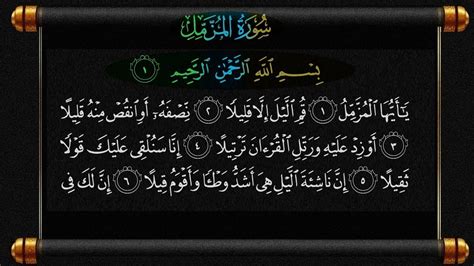 سُورَةُ الْمُزَّمِّلِ
بِسْمِ ٱللَّهِ ٱلرَّحْمَٰنِ ٱلرَّحِيمِ ١
يَٰٓأَيُّهَا ٱلْمُزَّمِّلُ ١ قُمِ ٱلَّيْلَ إِلَّا قَلِيلًا ٢ نِّصْفَهُۥٓ أَوِ ٱنقُصْ مِنْهُ قَلِيلًا
٣ أَوْ زِدْ عَلَيْهِ وَرَتِّلِ ٱلْقُرْءَانَ تَرْتِيلًا ٤ إِنَّا سَنُلْقِى عَلَيْكَ قَوْلًا
ثَقِيلًا ٥ إِنَّ نَاشِئَةَ ٱلَّيْلِ هِىَ أَشَدُّ وَطْـًٔا وَأَقْوَمُ قِيلًا ٦ إِنَّ لَكَ فِى